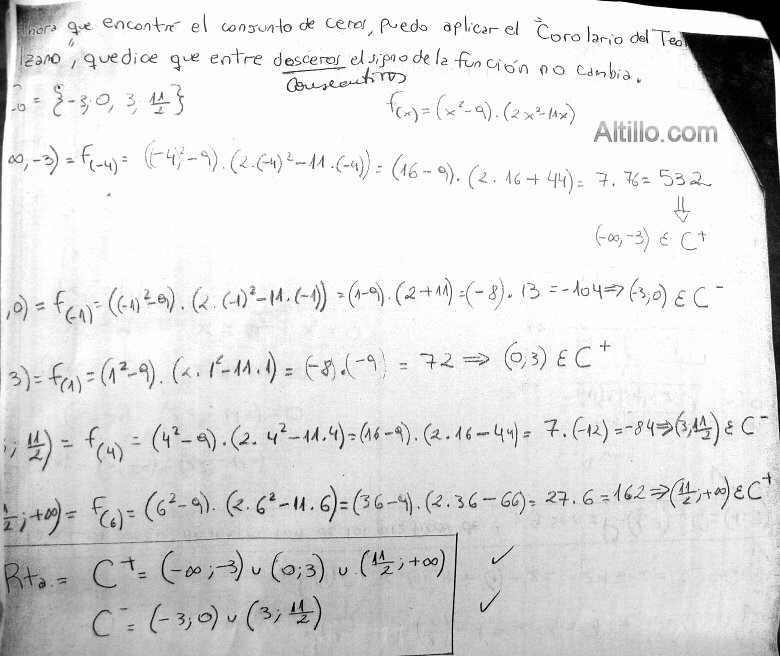 que encontré el conjunto de ceros, puedo aplicar el "Corolario del
", que dice que entre dos ceros el signo de la función no cambia.
consecutivos
= {-3; 0, 3, 11/2}
f(x) = (x²-9).(2x²-11x)
Altillo.com
∞,-3) = f(-4) = ((-4)²-9).(2.(-4)²-11.(-4)) = (16-9).(2.16+44) = 7.76 = 532
⇓
(-∞,-3) ε C⁺
,0) = f(-1) = ((-1)²-9).(2.(-1)²-11.(-1)) = (1-9).(2+11) = (-8).13 = -104 ⇒ (-3;0) ε C⁻
3) = f(1) = (1²-9).(2.1²-11.1) = (-8).(-9) = 72 ⇒ (0;3) ε C⁺
; 11/2) = f(4) = (4²-9).(2.4²-11.4) = (16-9).(2.16-44) = 7.(-12) = -84 ⇒ (3;11/2) ε C⁻
; +∞) = f(6) = (6²-9).(2.6²-11.6) = (36-9).(2.36-66) = 27.6 = 162 ⇒ (11/2; +∞) ε C⁺
Rta. = C⁺ = (-∞;-3) ∪ (0;3) ∪ (11/2; +∞) ✓
C⁻ = (-3;0) ∪ (3; 11/2) ✓